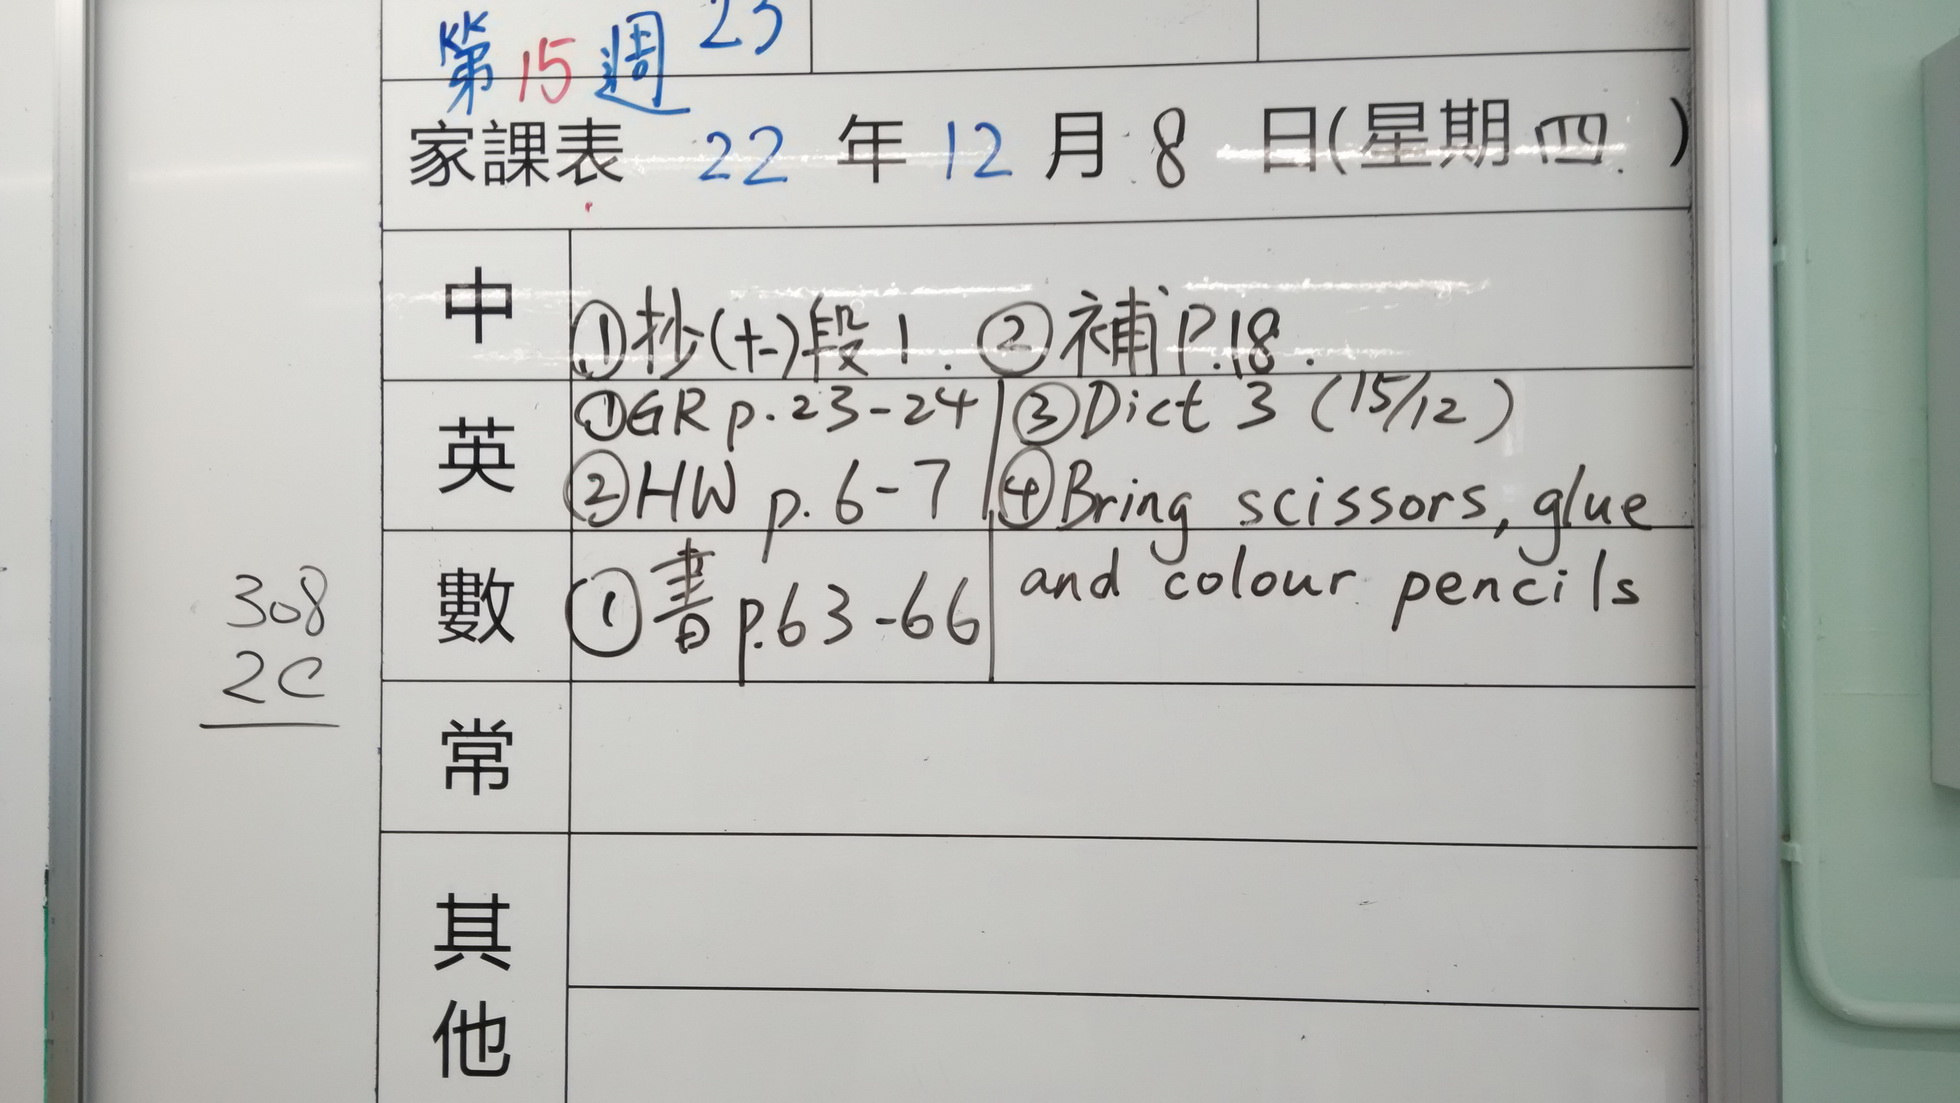 第15週 23
家課表 22 年 12 月 8 日(星期四)
中
①抄(十一)段1. ②補P.18.
英
①GR p.23-24
②HW p.6-7
③Dict 3 (15/12)
④Bring scissors, glue
and colour pencils
數
①書p.63-66
常
其他
308
2C